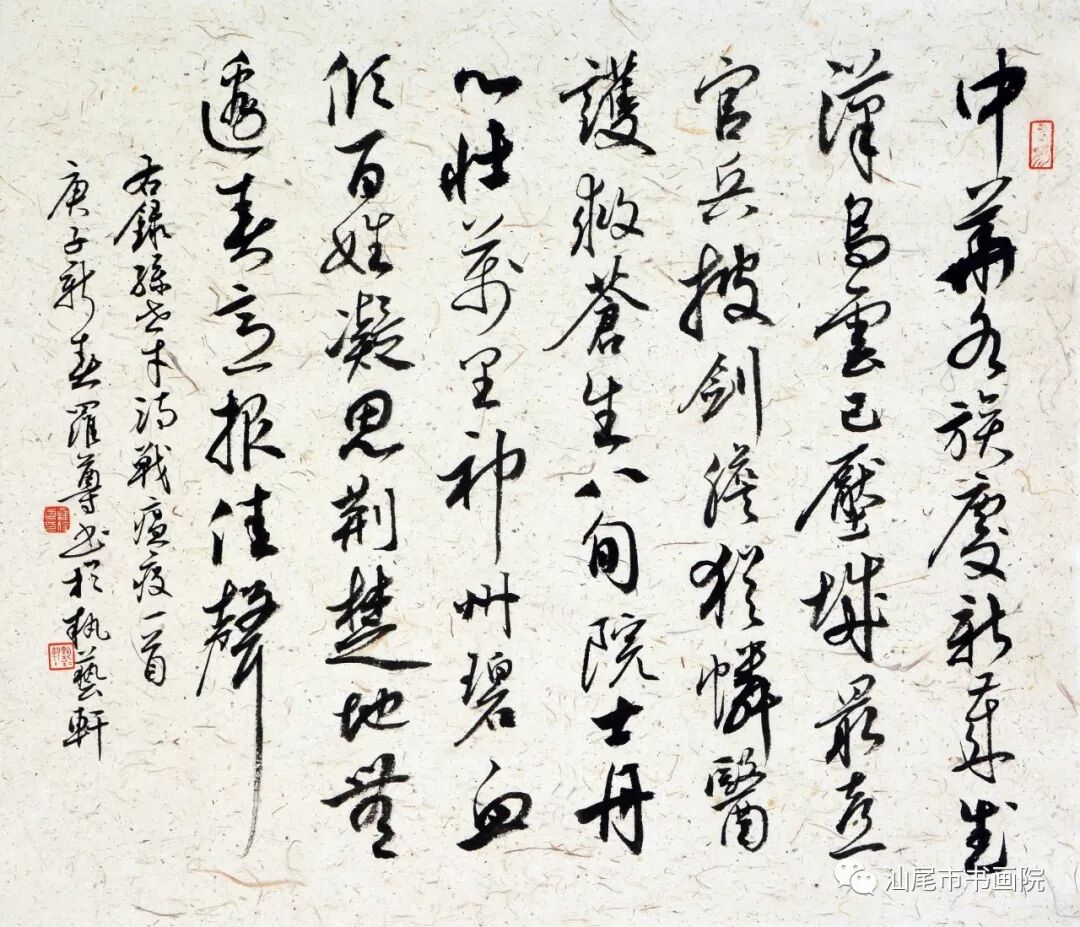 中華各族慶新歲武
漢烏雲已壓城最喜
官兵披劍膽猶憐醫
護救蒼生八旬院士丹
心壯萬里神州碧血
傾百姓凝思荊楚地無
邊春意報佳聲
右錄孫木詩戰瘟疫一首
庚子新春羅尊書於執藝軒
汕尾市书画院